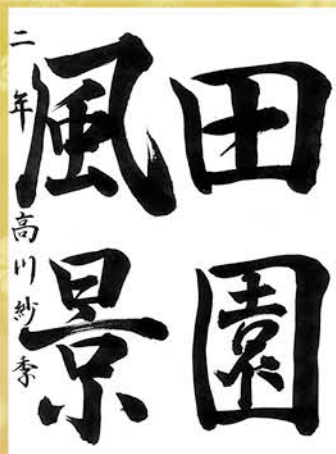 田園
風景
二年 高川紗季